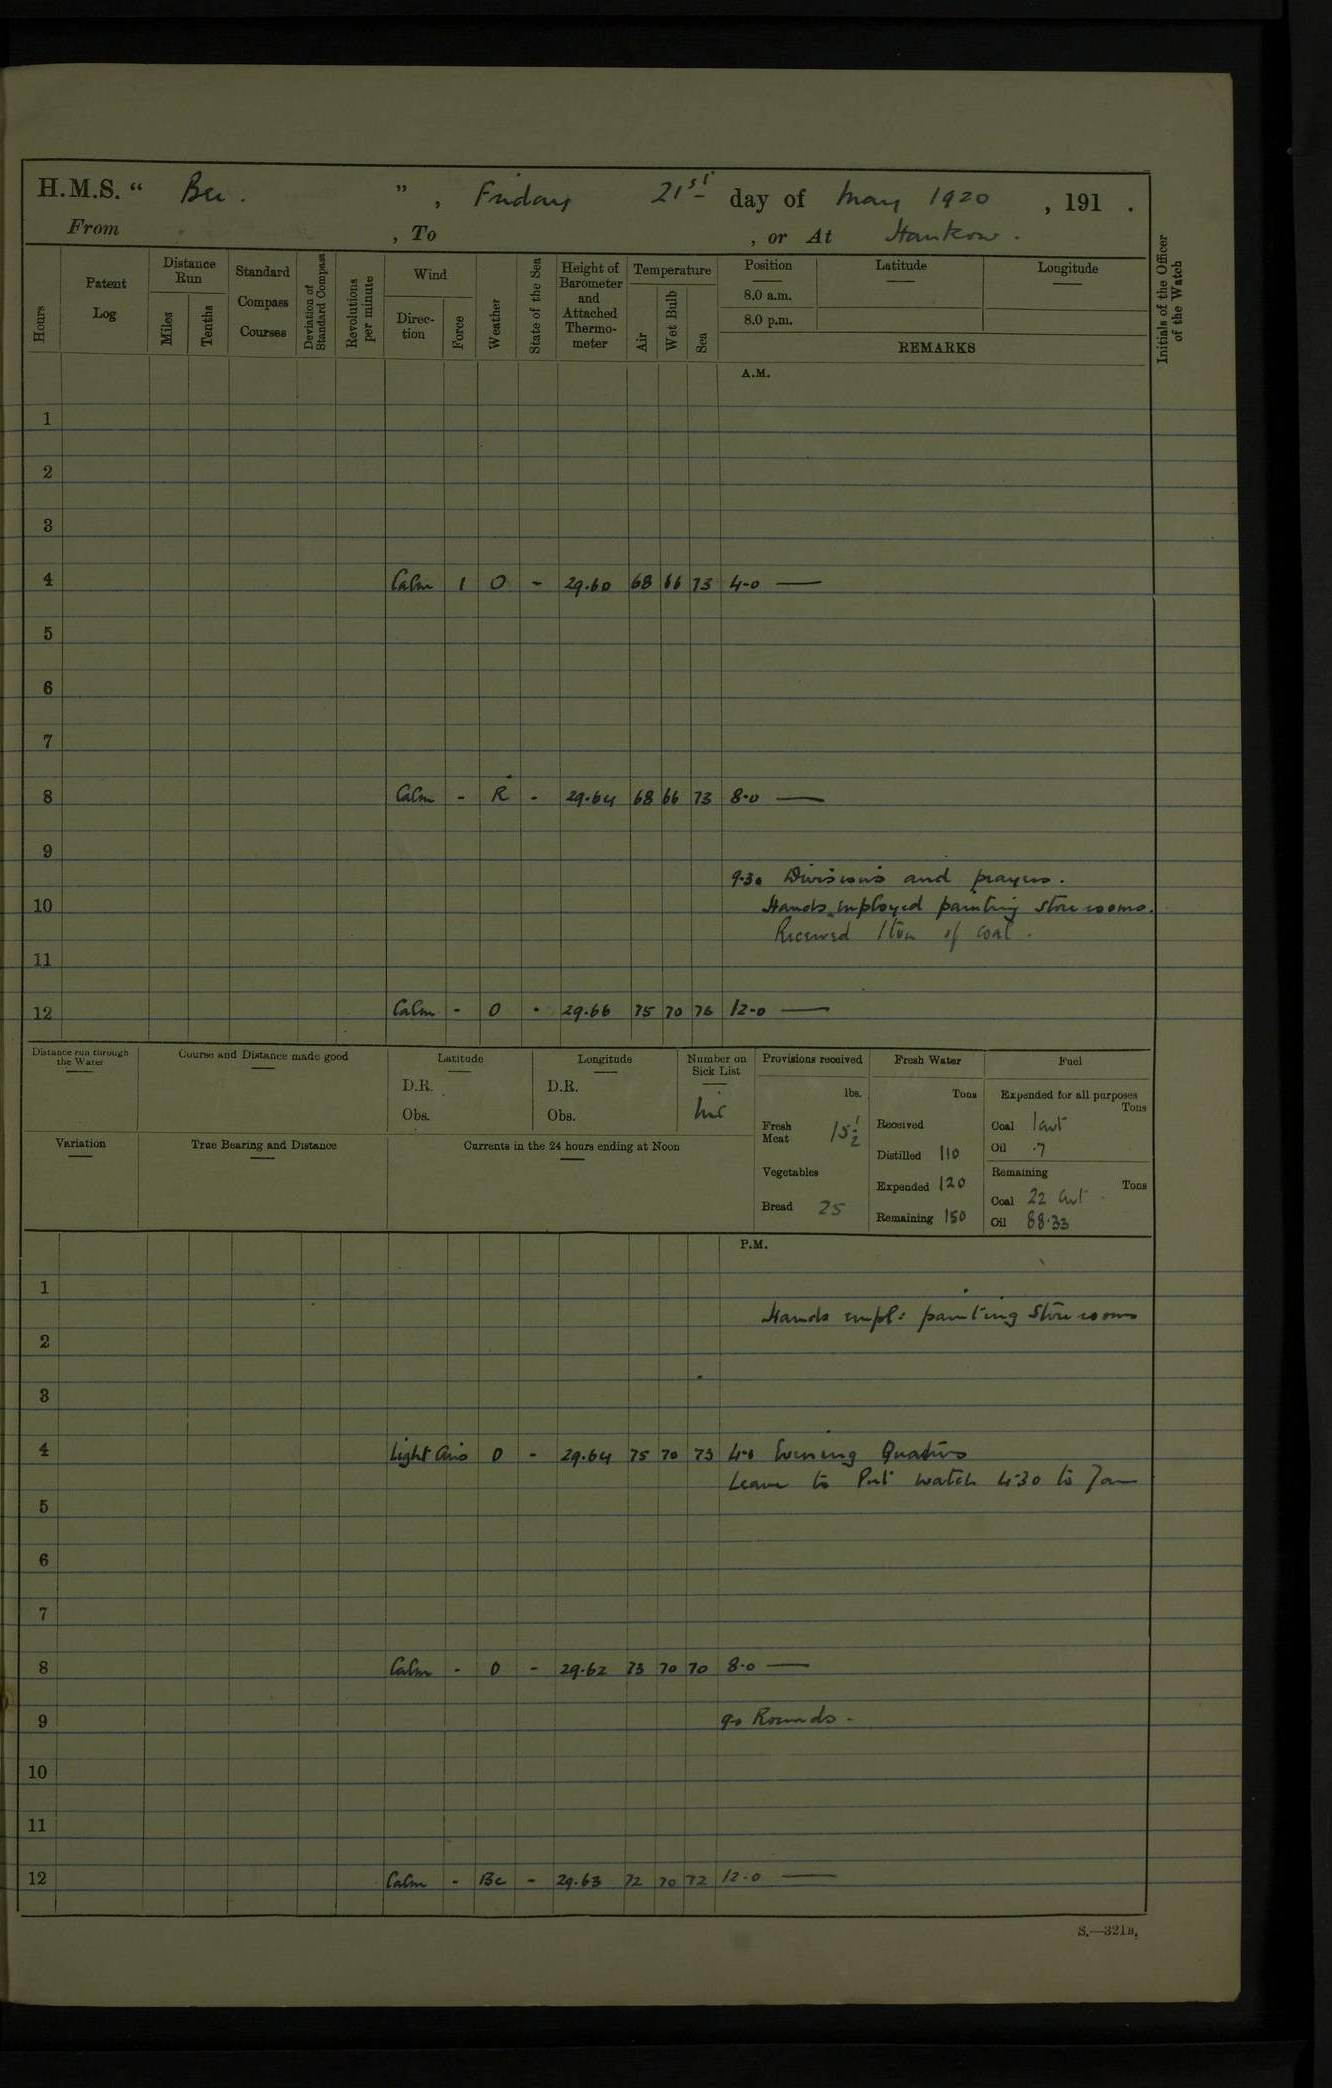 H.M.S. “ Bee. ” , Friday 21st day of May 1920 , 191 .
From , To , or At Hankow.
Hours
Patent Log
Distance Run
Miles
Tenths
Standard Compass Courses
Deviation of Standard Compass
Revolutions per minute
Wind
Direc-tion
Force
Weather
State of the Sea
Height of Barometer and Attached Thermo-meter
Temperature
Air
Wet Bulb
Sea
Position
8.0 a.m.
8.0 p.m.
Latitude
Longitude
REMARKS
Initials of the Officer of the Watch
A.M.
1
2
3
4 Calm 1 O - 29.60 68 66 73 4-0 —
5
6
7
8 Calm - R - 29.64 68 66 73 8.0 —
9
9.30 Divisions and prayers.
10 Hands employed painting store rooms.
Received 1 ton of coal.
11
12 Calm - O - 29.66 75 70 76 12-0 —
Distance run through the Water
Course and Distance made good
Latitude
D.R.
Obs.
Longitude
D.R.
Obs.
Number on Sick List
Nil
Provisions received
lbs.
Fresh Meat 15½
Vegetables
Bread 25
Fresh Water
Tons
Received
Distilled 110
Expended 120
Remaining 150
Fuel
Expended for all purposes
Tons
Coal 1 cwt
Oil .7
Remaining
Tons
Coal 22 cwt
Oil 88.33
Variation
True Bearing and Distance
Currents in the 24 hours ending at Noon
P.M.
1
Hands empl: painting store rooms
2
3
4 Light Airs O - 29.64 75 70 73 4.0 Evening Quarters
Leave to Port watch 4.30 to 7am
5
6
7
8 Calm - O - 29.62 73 70 70 8.0 —
9 9.0 Rounds -
10
11
12 Calm - Bc - 29.63 72 70 72 12.0 —
S.—321B.